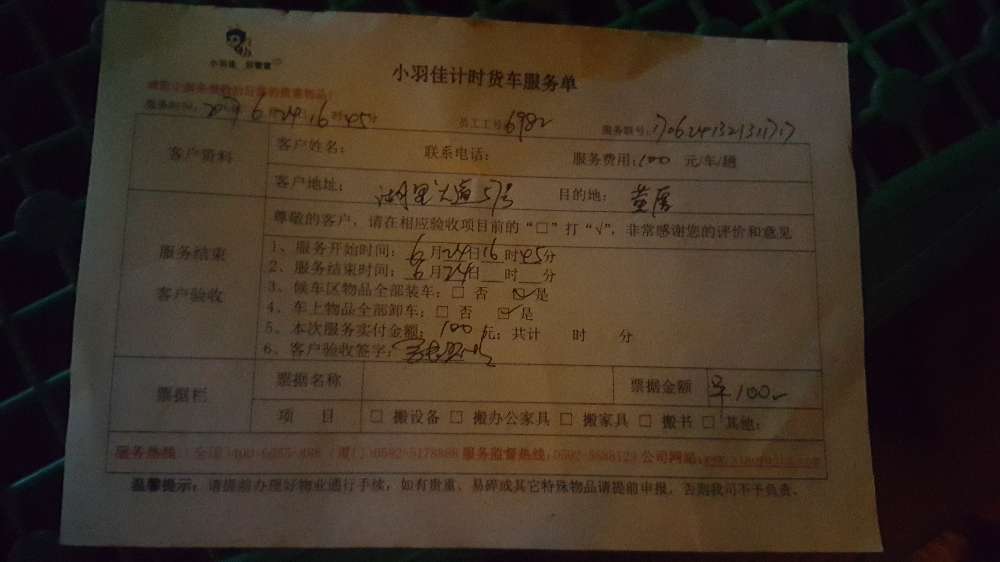 小羽佳
小羽佳计时货车服务单
服务时间：2017年6月24日16时45分 员工工号：6982 服务联号：
客户资料 客户姓名： 联系电话： 服务费用：100 元/车/趟
客户地址：湖里大道57号 目的地：
服务结束
客户验收
尊敬的客户，请在相应验收项目前的“□”打“√”，非常感谢您的评价和意见
1、服务开始时间：6月24日16时45分
2、服务结束时间：6月24日 时 分
3、候车区物品全部装车：□ 否 ☑ 是
4、车上物品全部卸车：□ 否 ☑ 是
5、本次服务实付金额：100元；共计 时 分
6、客户验收签字：
票据栏 票据名称 票据金额 100
项 目 □ 搬设备 □ 搬办公家具 □ 搬家具 □ 搬书 □ 其他：
服务热线：全国：厦门：0592-5178888 服务监督热线：0592-5888123 公司网站：
温馨提示：请提前办理好物业通行手续，如有贵重、易碎或其它特殊物品请提前申报，否则我司不予负责。